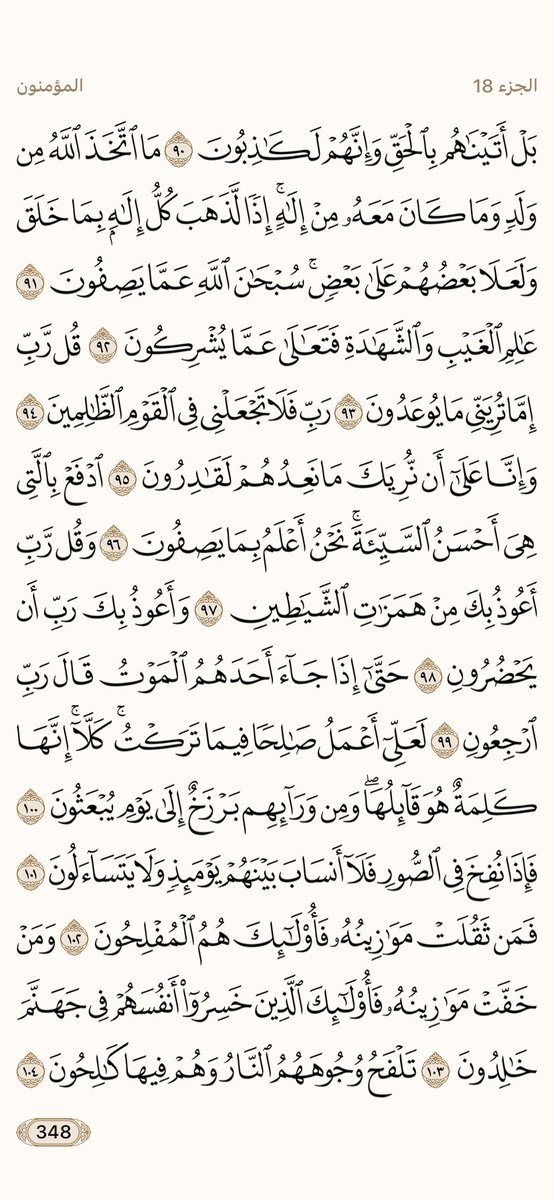 الجزء 18 المؤمنون
بَلْ أَتَيْنَٰهُم بِٱلْحَقِّ وَإِنَّهُمْ لَكَٰذِبُونَ ٩٠ مَا ٱتَّخَذَ ٱللَّهُ مِن
وَلَدٍ وَمَا كَانَ مَعَهُۥ مِنْ إِلَٰهٍ ۚ إِذًا لَّذَهَبَ كُلُّ إِلَٰهٍۭ بِمَا خَلَقَ
وَلَعَلَا بَعْضُهُمْ عَلَىٰ بَعْضٍ ۚ سُبْحَٰنَ ٱللَّهِ عَمَّا يَصِفُونَ ٩١
عَٰلِمِ ٱلْغَيْبِ وَٱلشَّهَٰدَةِ فَتَعَٰلَىٰ عَمَّا يُشْرِكُونَ ٩٢ قُل رَّبِّ
إِمَّا تُرِيَنِّى مَا يُوعَدُونَ ٩٣ رَبِّ فَلَا تَجْعَلْنِى فِى ٱلْقَوْمِ ٱلظَّٰلِمِينَ ٩٤
وَإِنَّا عَلَىٰٓ أَن نُّرِيَكَ مَا نَعِدُهُمْ لَقَٰدِرُونَ ٩٥ ٱدْفَعْ بِٱلَّتِى
هِىَ أَحْسَنُ ٱلسَّيِّئَةَ ۚ نَحْنُ أَعْلَمُ بِمَا يَصِفُونَ ٩٦ وَقُل رَّبِّ
أَعُوذُ بِكَ مِنْ هَمَزَٰتِ ٱلشَّيَٰطِينِ ٩٧ وَأَعُوذُ بِكَ رَبِّ أَن
يَحْضُرُونِ ٩٨ حَتَّىٰٓ إِذَا جَآءَ أَحَدَهُمُ ٱلْمَوْتُ قَالَ رَبِّ
ٱرْجِعُونِ ٩٩ لَعَلِّىٓ أَعْمَلُ صَٰلِحًا فِيمَا تَرَكْتُ ۚ كَلَّآ ۚ إِنَّهَا
كَلِمَةٌ هُوَ قَآئِلُهَا ۖ وَمِن وَرَآئِهِم بَرْزَخٌ إِلَىٰ يَوْمِ يُبْعَثُونَ ١٠٠
فَإِذَا نُفِخَ فِى ٱلصُّورِ فَلَآ أَنسَابَ بَيْنَهُمْ يَوْمَئِذٍ وَلَا يَتَسَآءَلُونَ ١٠١
فَمَن ثَقُلَتْ مَوَٰزِينُهُۥ فَأُو۟لَٰٓئِكَ هُمُ ٱلْمُفْلِحُونَ ١٠٢ وَمَنْ
خَفَّتْ مَوَٰزِينُهُۥ فَأُو۟لَٰٓئِكَ ٱلَّذِينَ خَسِرُوٓا۟ أَنفُسَهُمْ فِى جَهَنَّمَ
خَٰلِدُونَ ١٠٣ تَلْفَحُ وُجُوهَهُمُ ٱلنَّارُ وَهُمْ فِيهَا كَٰلِحُونَ ١٠٤
348